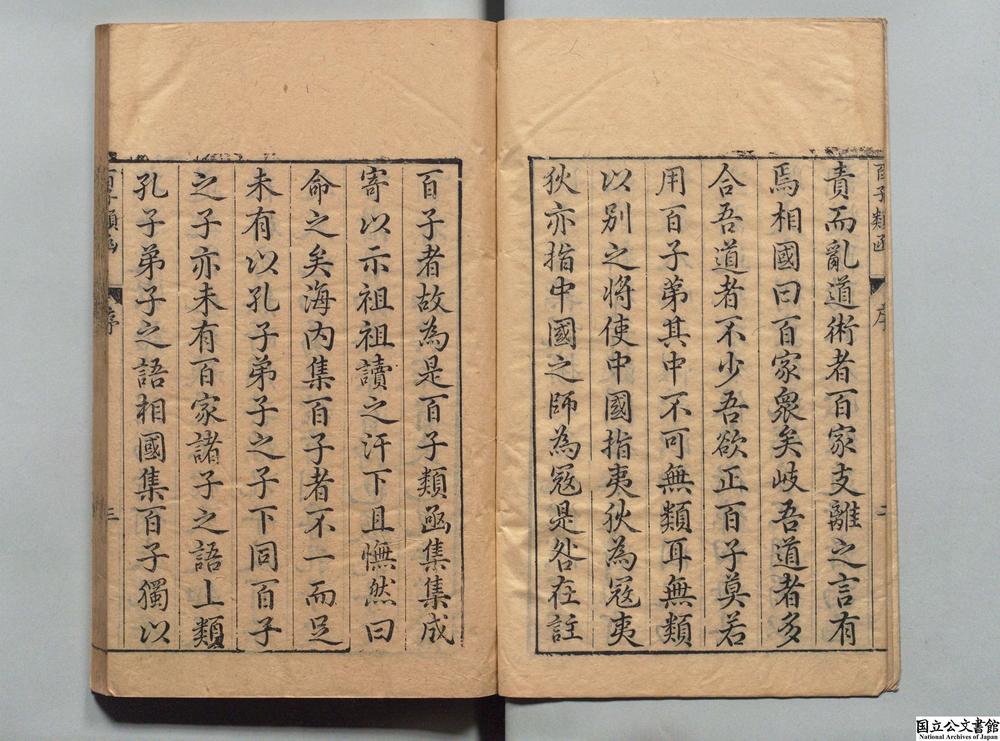 百子類函
序
二
責而亂道術者百家支離之言有
焉相國曰百家衆矣岐吾道者多
合吾道者不少吾欲正百子莫若
用百子弟其中不可無類耳無類
以别之将使中國指夷狄為冦夷
狄亦指中國之師為冦是咎在註
百子者故為是百子類凾集集成
寄以示祖祖讀之汗下且憮然曰
命之矣海内集百子者不一而足
未有以孔子弟子之子下同百子
之子亦未有百家諸子之語上類
孔子弟子之語相國集百子獨以
百子類函
序
三
国立公文書館
National Archives of Japan